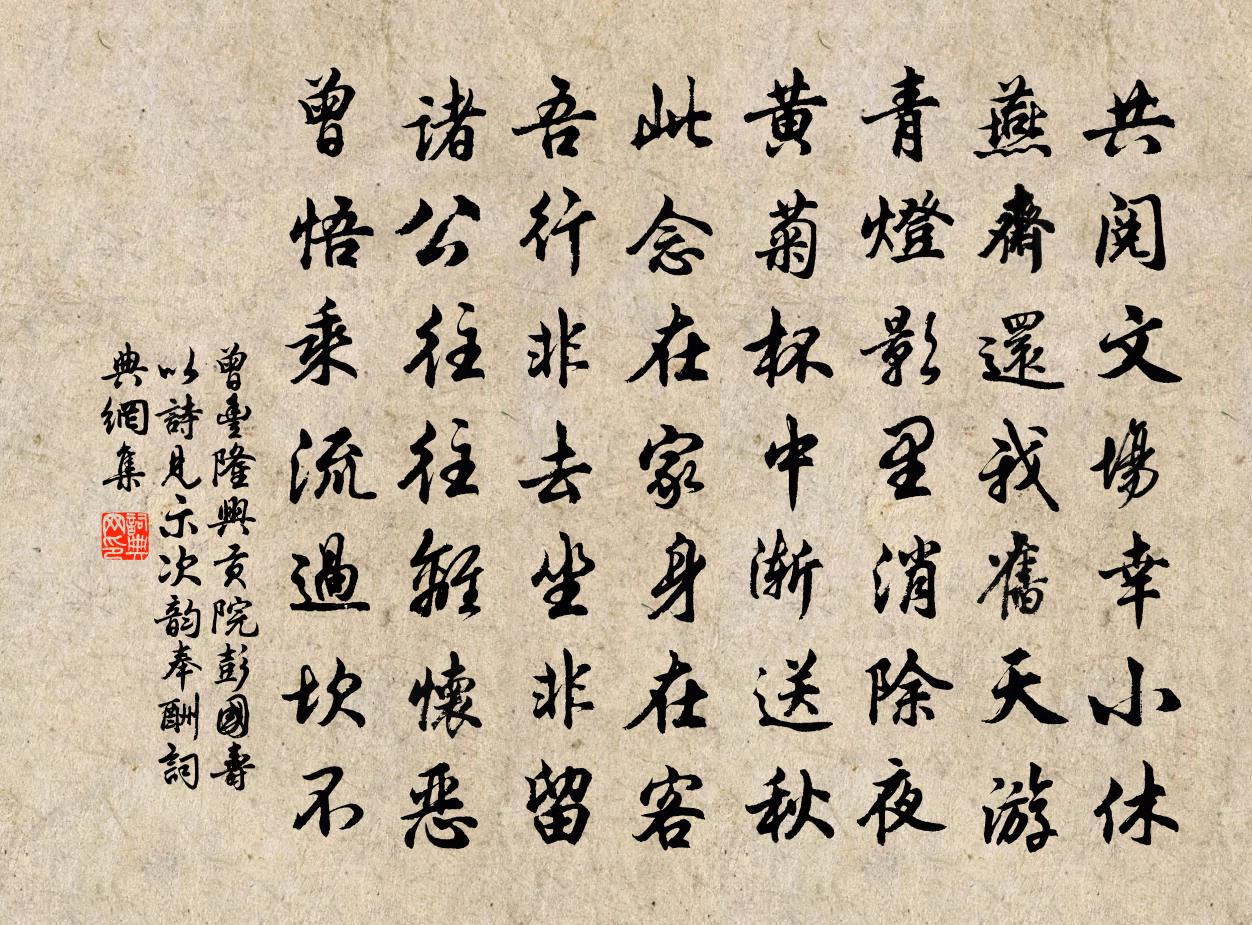 共阅文場幸小休
燕齋還我舊天游
青燈影里消除夜
黃菊杯中漸送秋
此念在家身在客
吾行非去坐非留
诸公往往難懷惡
曾悟乘流過坎不
曾豊隆興貢院彭國壽
以詩見示次韵奉酬詞
典網集
詞典网印